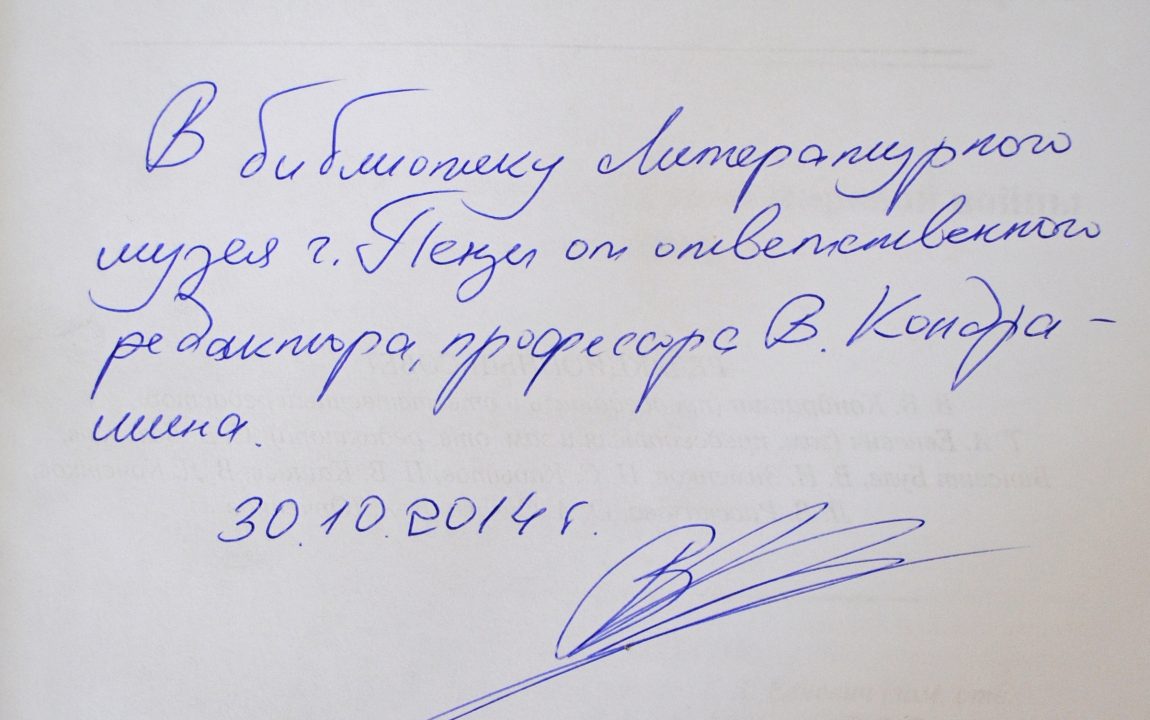 В библиотеку Литературного
музея г. Пензы от ответственного
редактора, профессора В. Кондра-
шина.
30.10.2014 г.